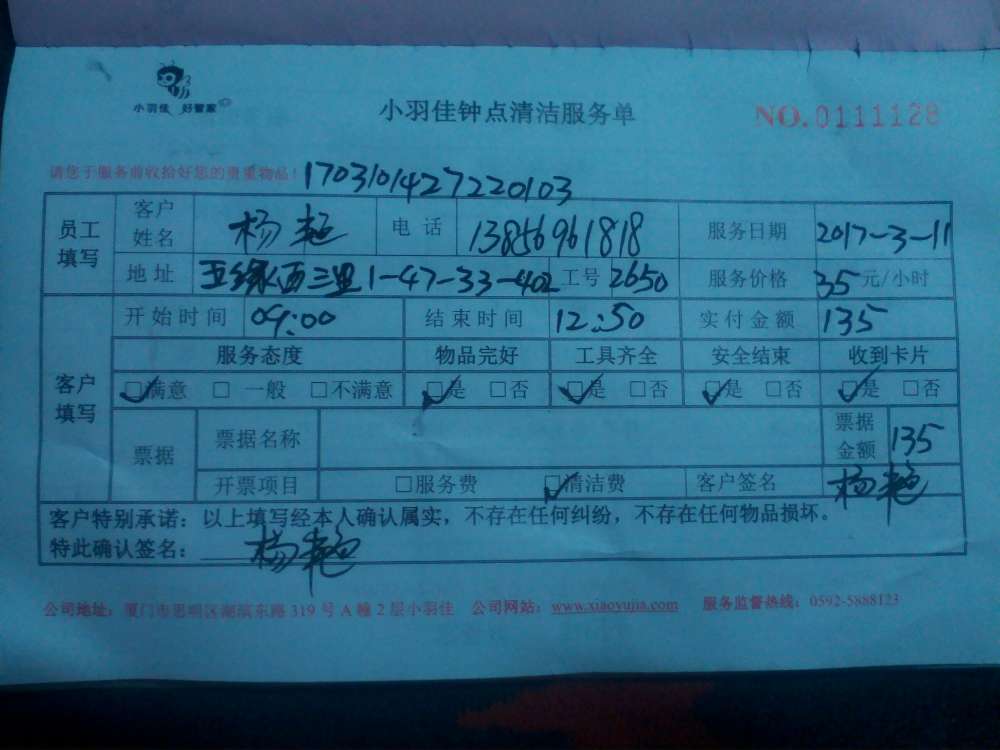 小羽佳 好管家
小羽佳钟点清洁服务单
NO.0111128
请您于服务前收拾好您的贵重物品！ 1703101427220103
员工填写 客户姓名 杨艳 电话 13856961818 服务日期 2017-3-11
地址 五缘西三里1-47-33-402 工号 2650 服务价格 35元/小时
客户填写 开始时间 09:00 结束时间 12:50 实付金额 135
服务态度 物品完好 工具齐全 安全结束 收到卡片
☑满意 □一般 □不满意 ☑是 □否 ☑是 □否 ☑是 □否 ☑是 □否
票据 票据名称 票据金额 135
开票项目 □服务费 ☑清洁费 客户签名 杨艳
客户特别承诺：以上填写经本人确认属实，不存在任何纠纷，不存在任何物品损坏。
特此确认签名： 杨艳
公司地址：厦门市思明区湖滨东路319号A幢2层小羽佳 公司网站：www.xiaoyujia.com 服务监督热线：0592-5888123